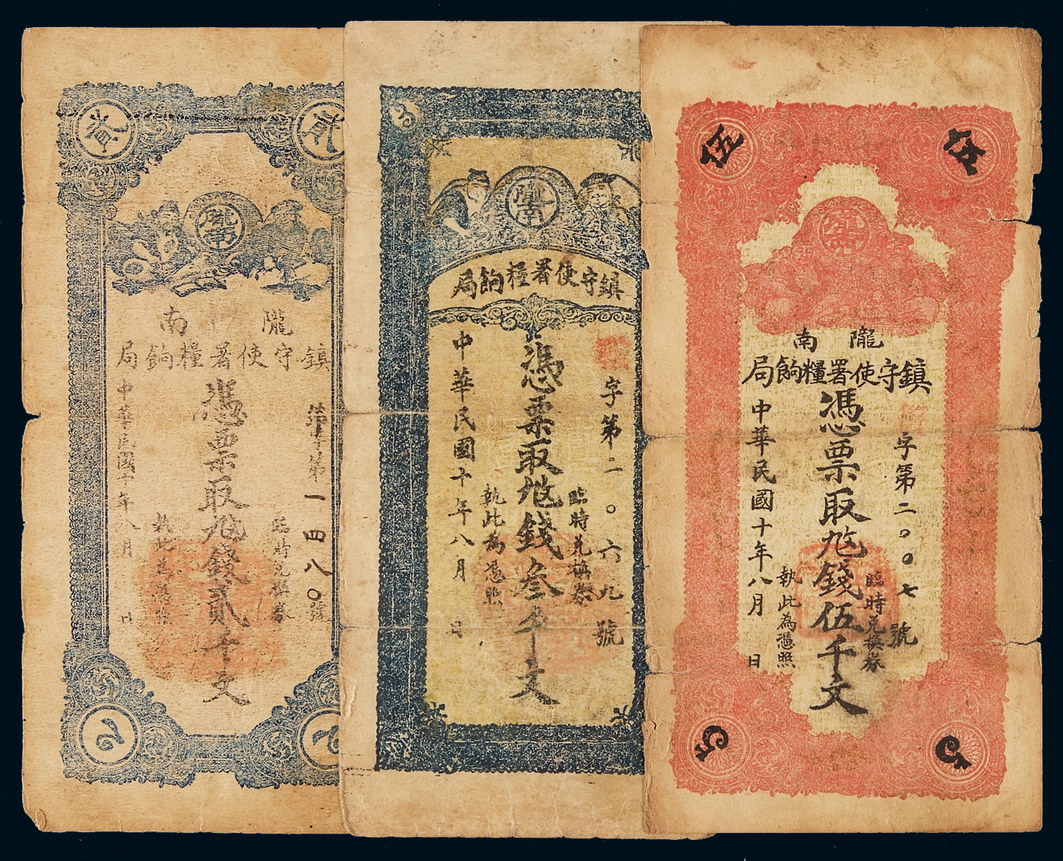 貳
貳
隴南
隴南
鎮守使署糧餉局
第一四八〇號
臨時兌換券
憑票取尨錢貳千文
執此為憑照
中華民國十年八月 日
2
2
3
隴南
鎮守使署糧餉局
字第二〇六九號
臨時兌換券
憑票取尨錢叁千文
執此為憑照
中華民國十年八月 日
伍
伍
隴南
隴南
鎮守使署糧餉局
字第二〇〇七號
臨時兌換券
憑票取尨錢伍千文
執此為憑照
中華民國十年八月 日
5
5